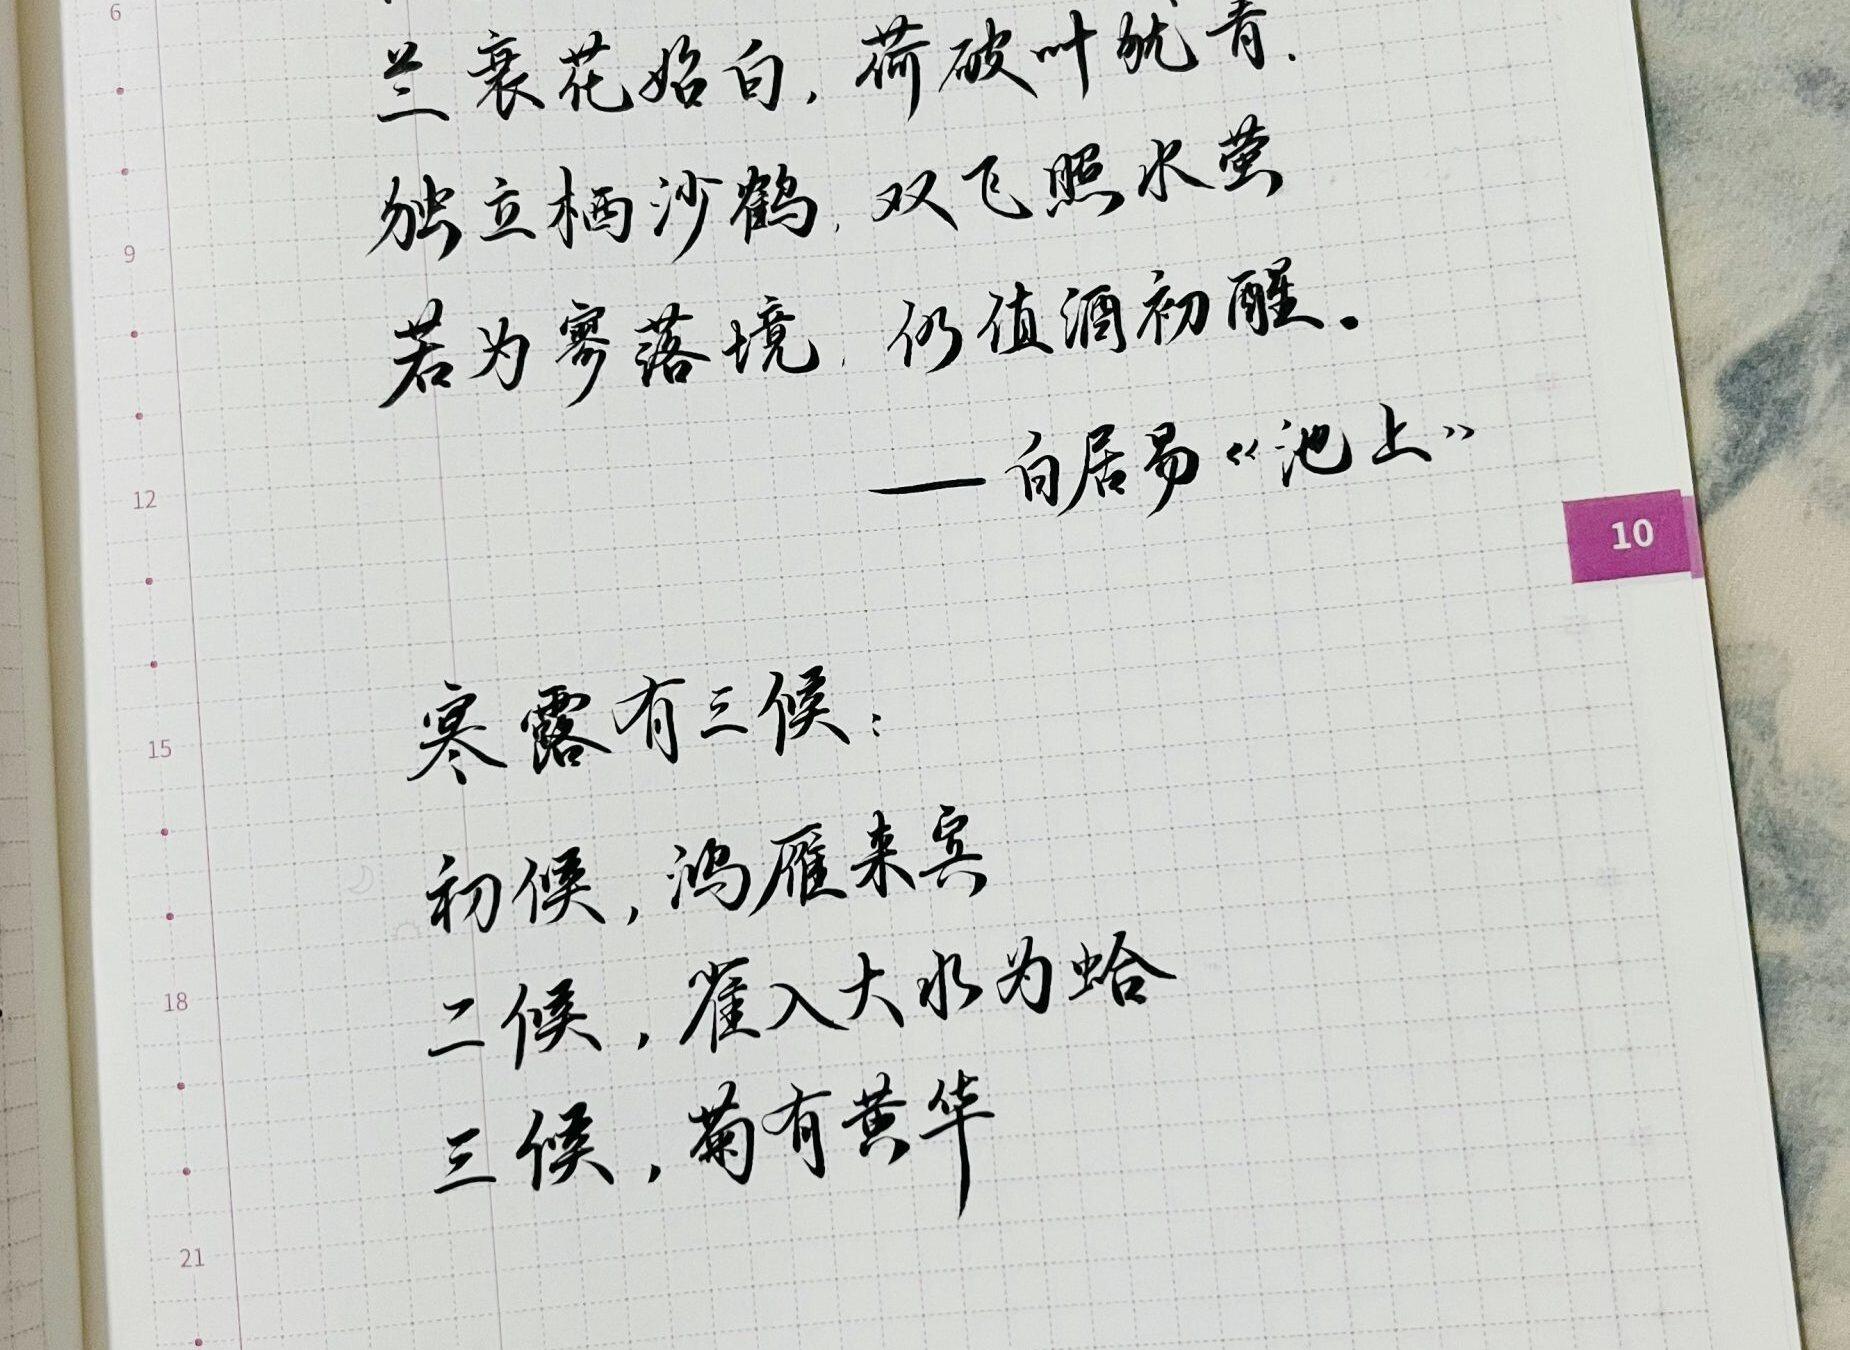 6
兰衰花始白,荷破叶犹青.
独立栖沙鹤,双飞照水萤
9
若为寥落境,仍值酒初醒。
12
——白居易《池上》
10
寒露有三候:
15
初候,鸿雁来宾
二候,雀入大水为蛤
18
三候,菊有黄华
21